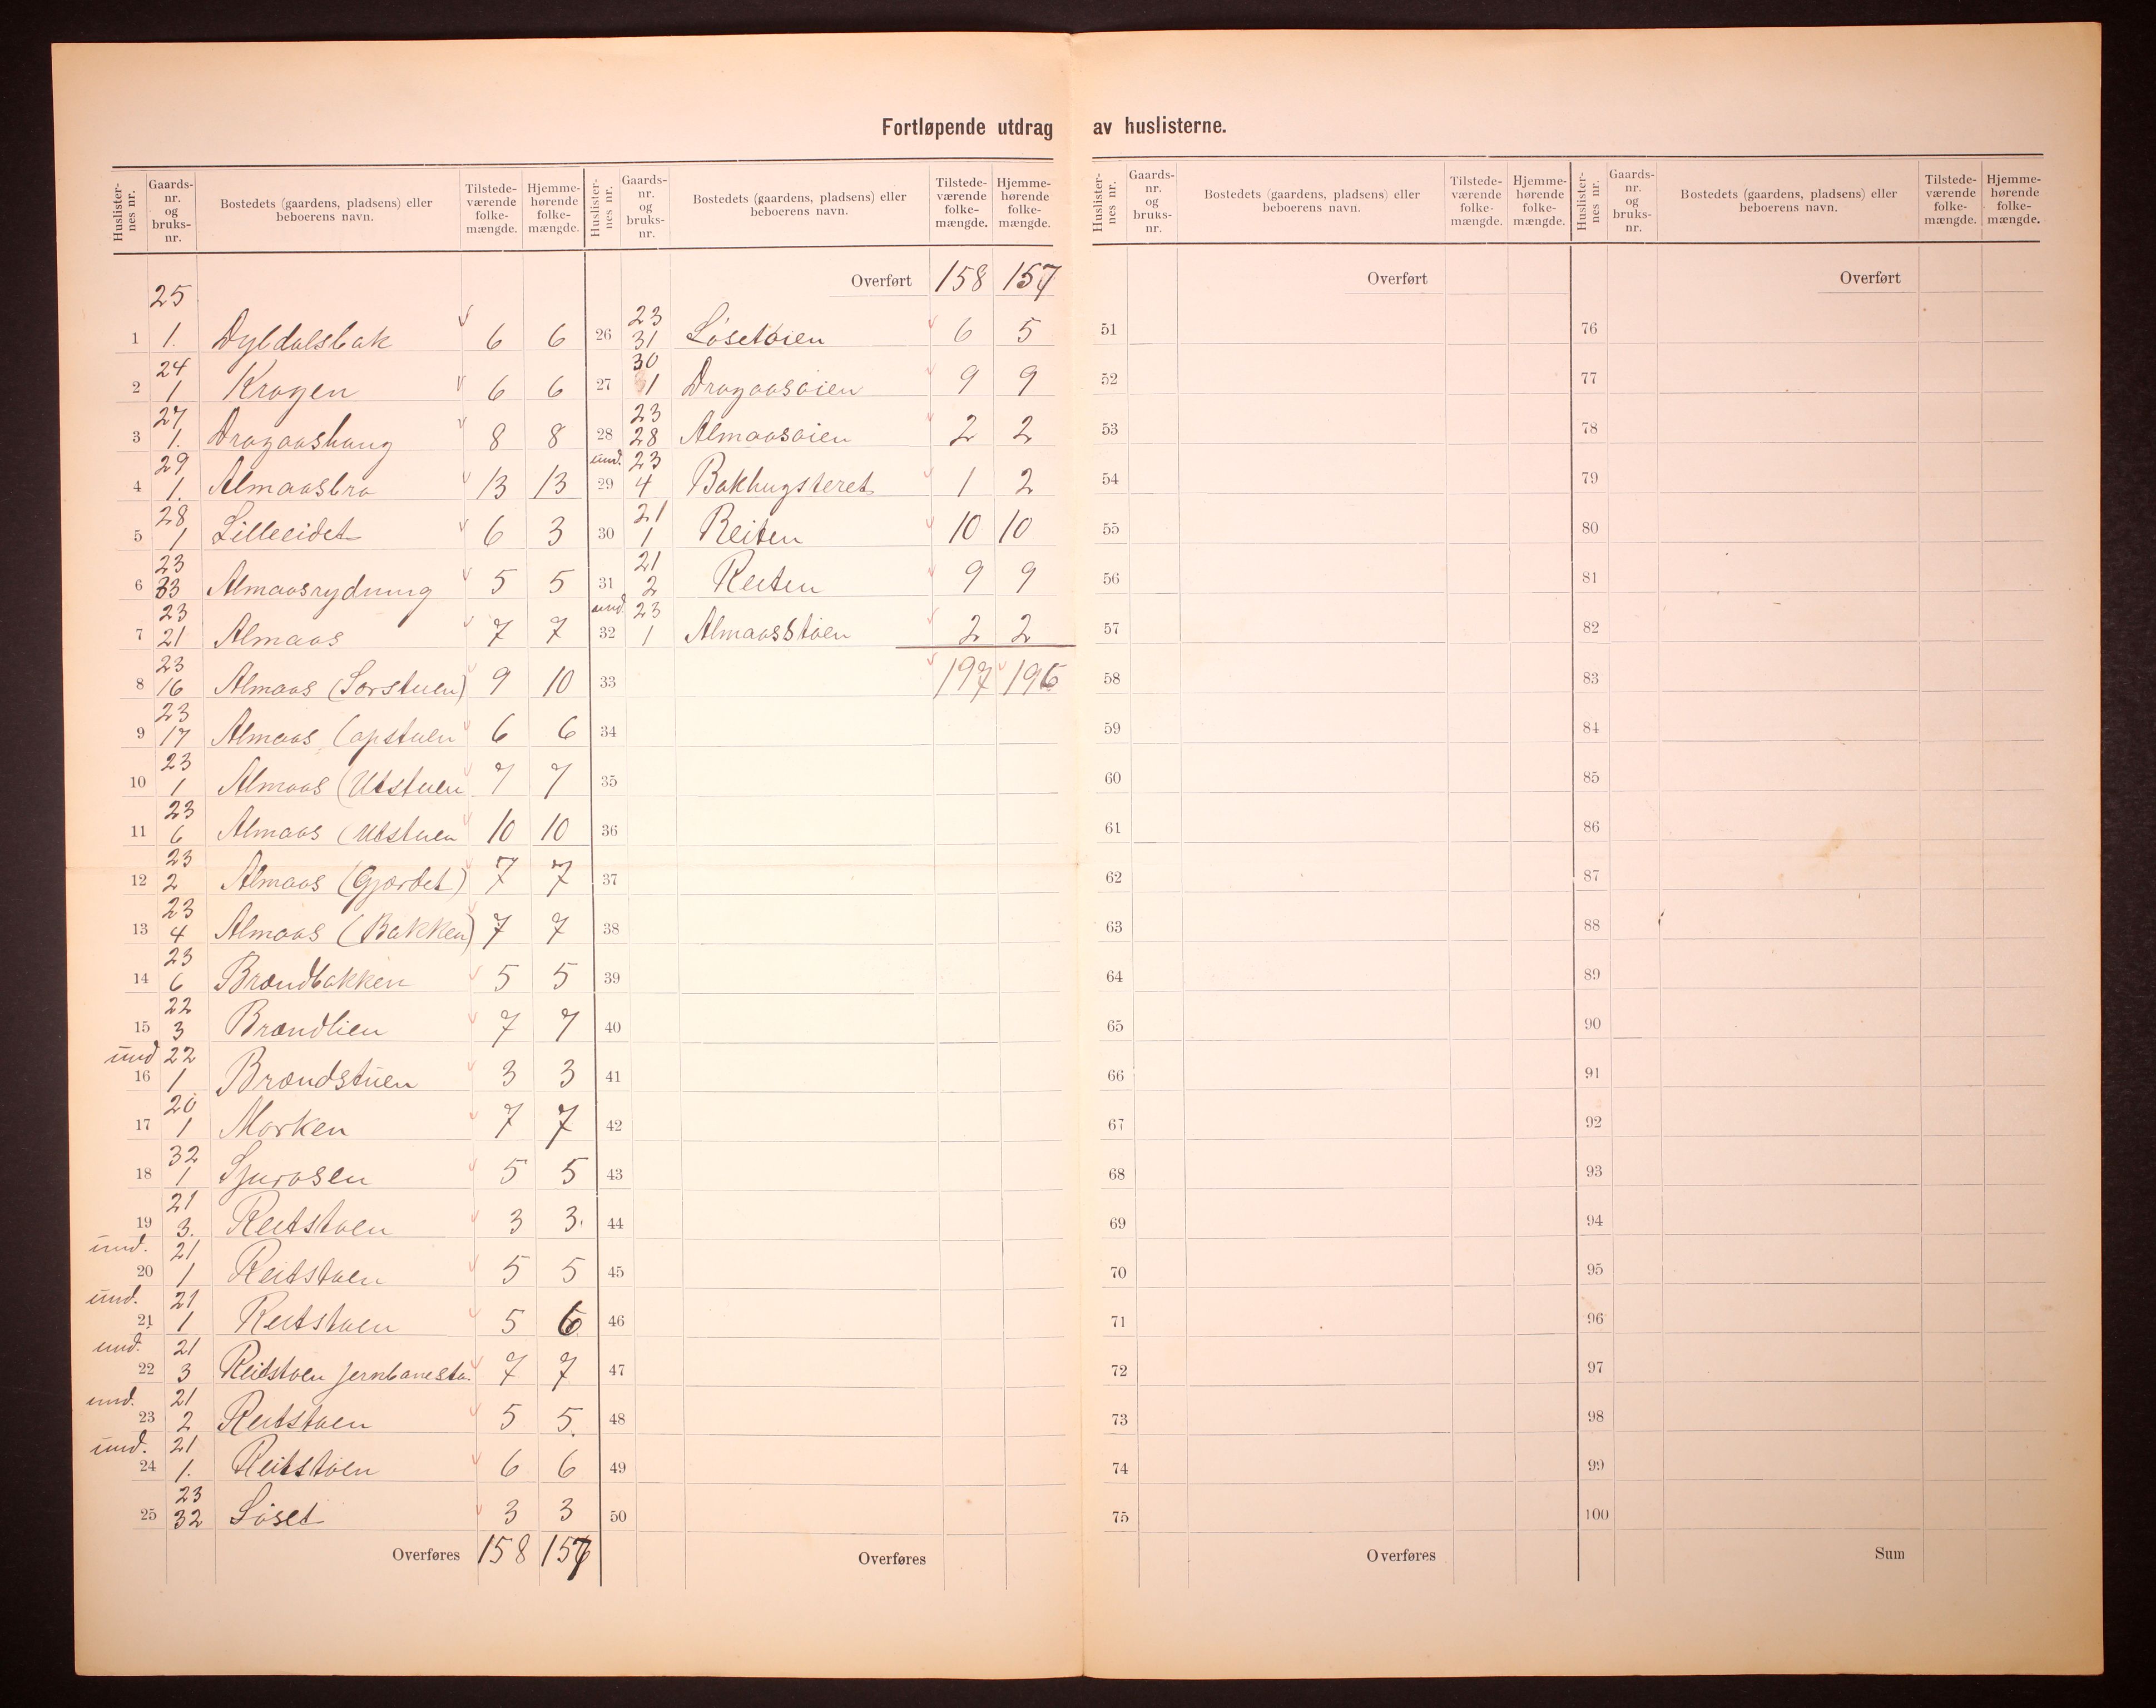 Fortløpende utdrag av huslisterne.
Huslister-nes nr. Gaards-nr. og bruks-nr. Bostedets (gaardens, pladsens) eller beboerens navn. Tilstede-værende folke-mængde. Hjemme-hørende folke-mængde.
25
1 1. Dyldalsbak 6 6
24
2 1 Kragen 6 6
27
3 1. Dragaashaug 8 8
29
4 1. Almaasbro 13 13
28
5 1 Lilleeidet 6 3
23
6 33 Almaasrydning 5 5
23
7 21 Almaas 7 7
23
8 16 Almaas (Sorstuen) 9 10
23
9 17 Almaas (opstuen 6 6
23
10 1 Almaas (Utstuen 7 7
23
11 6 Almaas (Utstuen 10 10
23
12 2 Almaas (Gjærdet) 7 7
23
13 4 Almaas (Bakken) 7 7
23
14 6 Brændbakken 5 5
22
15 3 Brændlien 7 7
und 22
16 1 Brændstuen 3 3
20
17 1 Morken 7 7
32
18 1 Sjurosen 5 5
21
19 3. Reitstøen 3 3.
und. 21
20 1 Reitstøen 5 5
und. 21
21 1 Reitstøen 5 6
und. 21
22 3 Reitstøen jernbanesta. 7 7
und. 21
23 2 Reitstøen 5 5.
und. 21
24 1. Reitstøen 6 6
23
25 32 Løset 3 3
Overføres 158 157
Huslister-nes nr. Gaards-nr. og bruks-nr. Bostedets (gaardens, pladsens) eller beboerens navn. Tilstede-værende folke-mængde. Hjemme-hørende folke-mængde.
Overført 158 157
23
26 31 Løsetøien 6 5
30
27 1 Dragaasøien 9 9
23
28 28 Almaasøien 2 2
und. 23
29 4 Bakhugsteret 1 2
21
30 1 Reiten 10 10
21
31 2 Reiten 9 9
und. 23
32 1 Almaasstøen 2 2
33 197 196
34
35
36
37
38
39
40
41
42
43
44
45
46
47
48
49
50
Overføres
Huslister-nes nr. Gaards-nr. og bruks-nr. Bostedets (gaardens, pladsens) eller beboerens navn. Tilstede-værende folke-mængde. Hjemme-hørende folke-mængde.
Overført
51
52
53
54
55
56
57
58
59
60
61
62
63
64
65
66
67
68
69
70
71
72
73
74
75
Overføres
Huslister-nes nr. Gaards-nr. og bruks-nr. Bostedets (gaardens, pladsens) eller beboerens navn. Tilstede-værende folke-mængde. Hjemme-hørende folke-mængde.
Overført
76
77
78
79
80
81
82
83
84
85
86
87
88
89
90
91
92
93
94
95
96
97
98
99
100
Sum